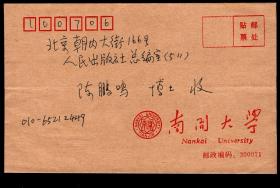 100706
贴邮
票处
北京朝内大街166号
人民出版社总编室(511)
陈鹏鸣 博士 收
010-65212449
南開大學
Nankai University
邮政编码：300071